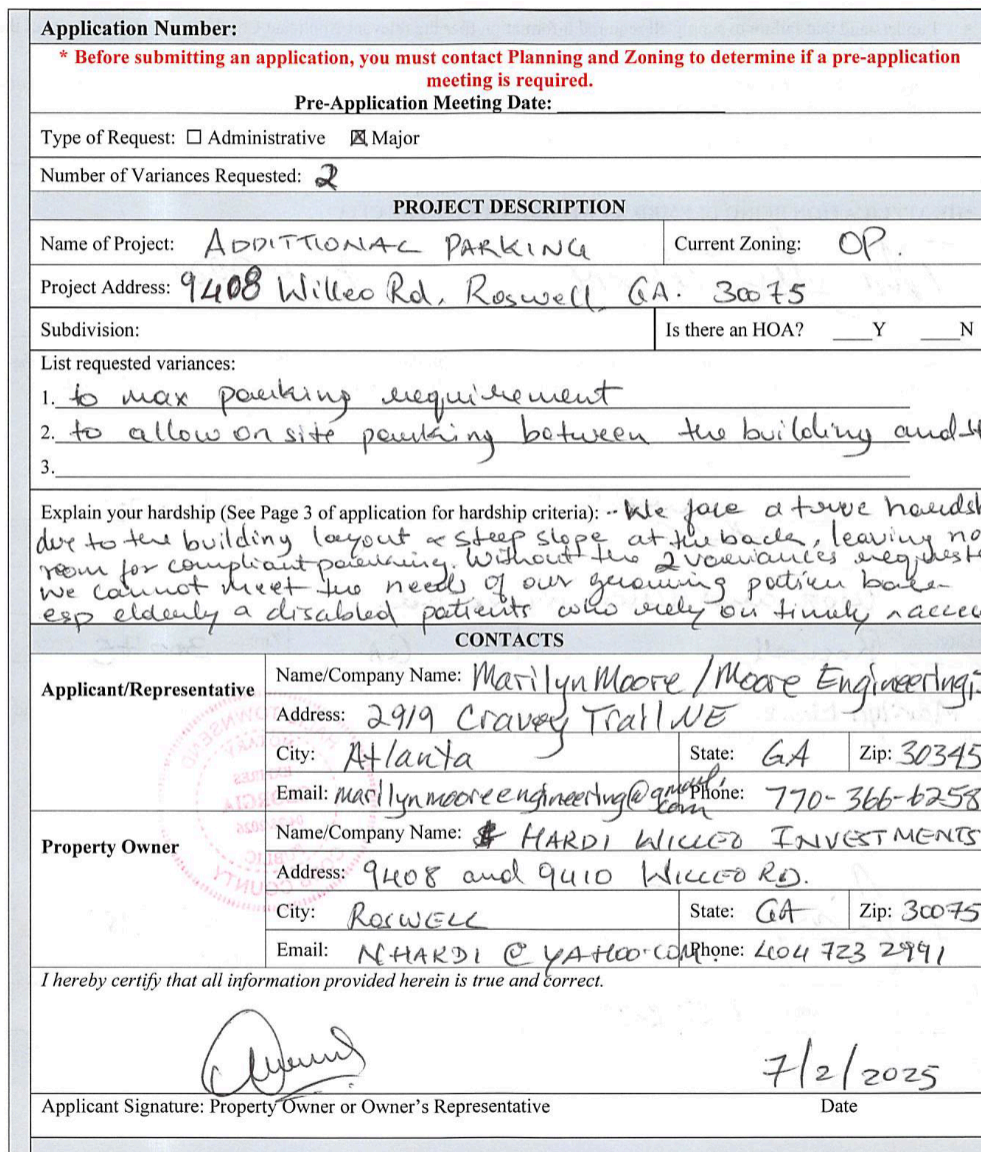 Application Number:
* Before submitting an application, you must contact Planning and Zoning to determine if a pre-application
meeting is required.
Pre-Application Meeting Date:
Type of Request: ☐ Administrative ☒ Major
Number of Variances Requested: 2
PROJECT DESCRIPTION
Name of Project: ADDITTIONAL PARKING Current Zoning: OP.
Project Address: 9408 Willeo Rd. Roswell, GA. 30075
Subdivision: Is there an HOA? ____Y ____N
List requested variances:
1. to max parking requirement
2. to allow on site parking between the building and
3.
Explain your hardship (See Page 3 of application for hardship criteria): -- We face a true hardsh
due to the building layout & steep slope at the back, leaving no
room for compliant parking. Without the 2 variances requeste
we cannot meet the needs of our growing patien base
esp elderly a disabled patients who rely on timely
CONTACTS
Applicant/Representative
Name/Company Name: Marilyn Moore / Moore Engineering,
Address: 2919 Cravey Trail NE
City: Atlanta State: GA Zip: 30345
Email: marilynmooreengineering@gmail.com Phone: 770-366-6258
Property Owner
Name/Company Name: HARDI WILLEO INVESTMENTS
Address: 9408 and 9410 WILLEO RD.
City: ROSWELL State: GA Zip: 30075
Email: NHARDI @ YAHOO.COM Phone: 404 723 2991
I hereby certify that all information provided herein is true and correct.
7/2/2025
Applicant Signature: Property Owner or Owner's Representative Date